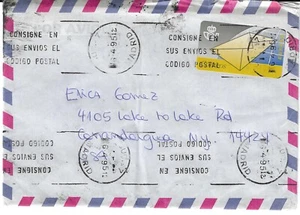 CONSIGNE EN
SUS ENVIOS EL
CODIGO POSTAL
MADRID
CONSIGNE EN
SUS ENVIOS EL
CODIGO POSTAL
Erica Gomez
4105 Lake to Lake Rd
Canandaigua NY 14424
CONSIGNE EN
SUS ENVIOS EL
CODIGO POSTAL
MADRID
CONSIGNE EN
SUS ENVIOS EL
CODIGO POSTAL